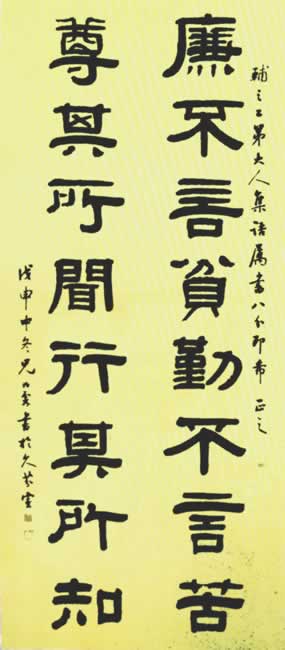 輔之二弟大人集語屬書八分即希 正之
廉不言貧勤不言苦
尊其所聞行其所知
戊申中冬兄書於久芬室